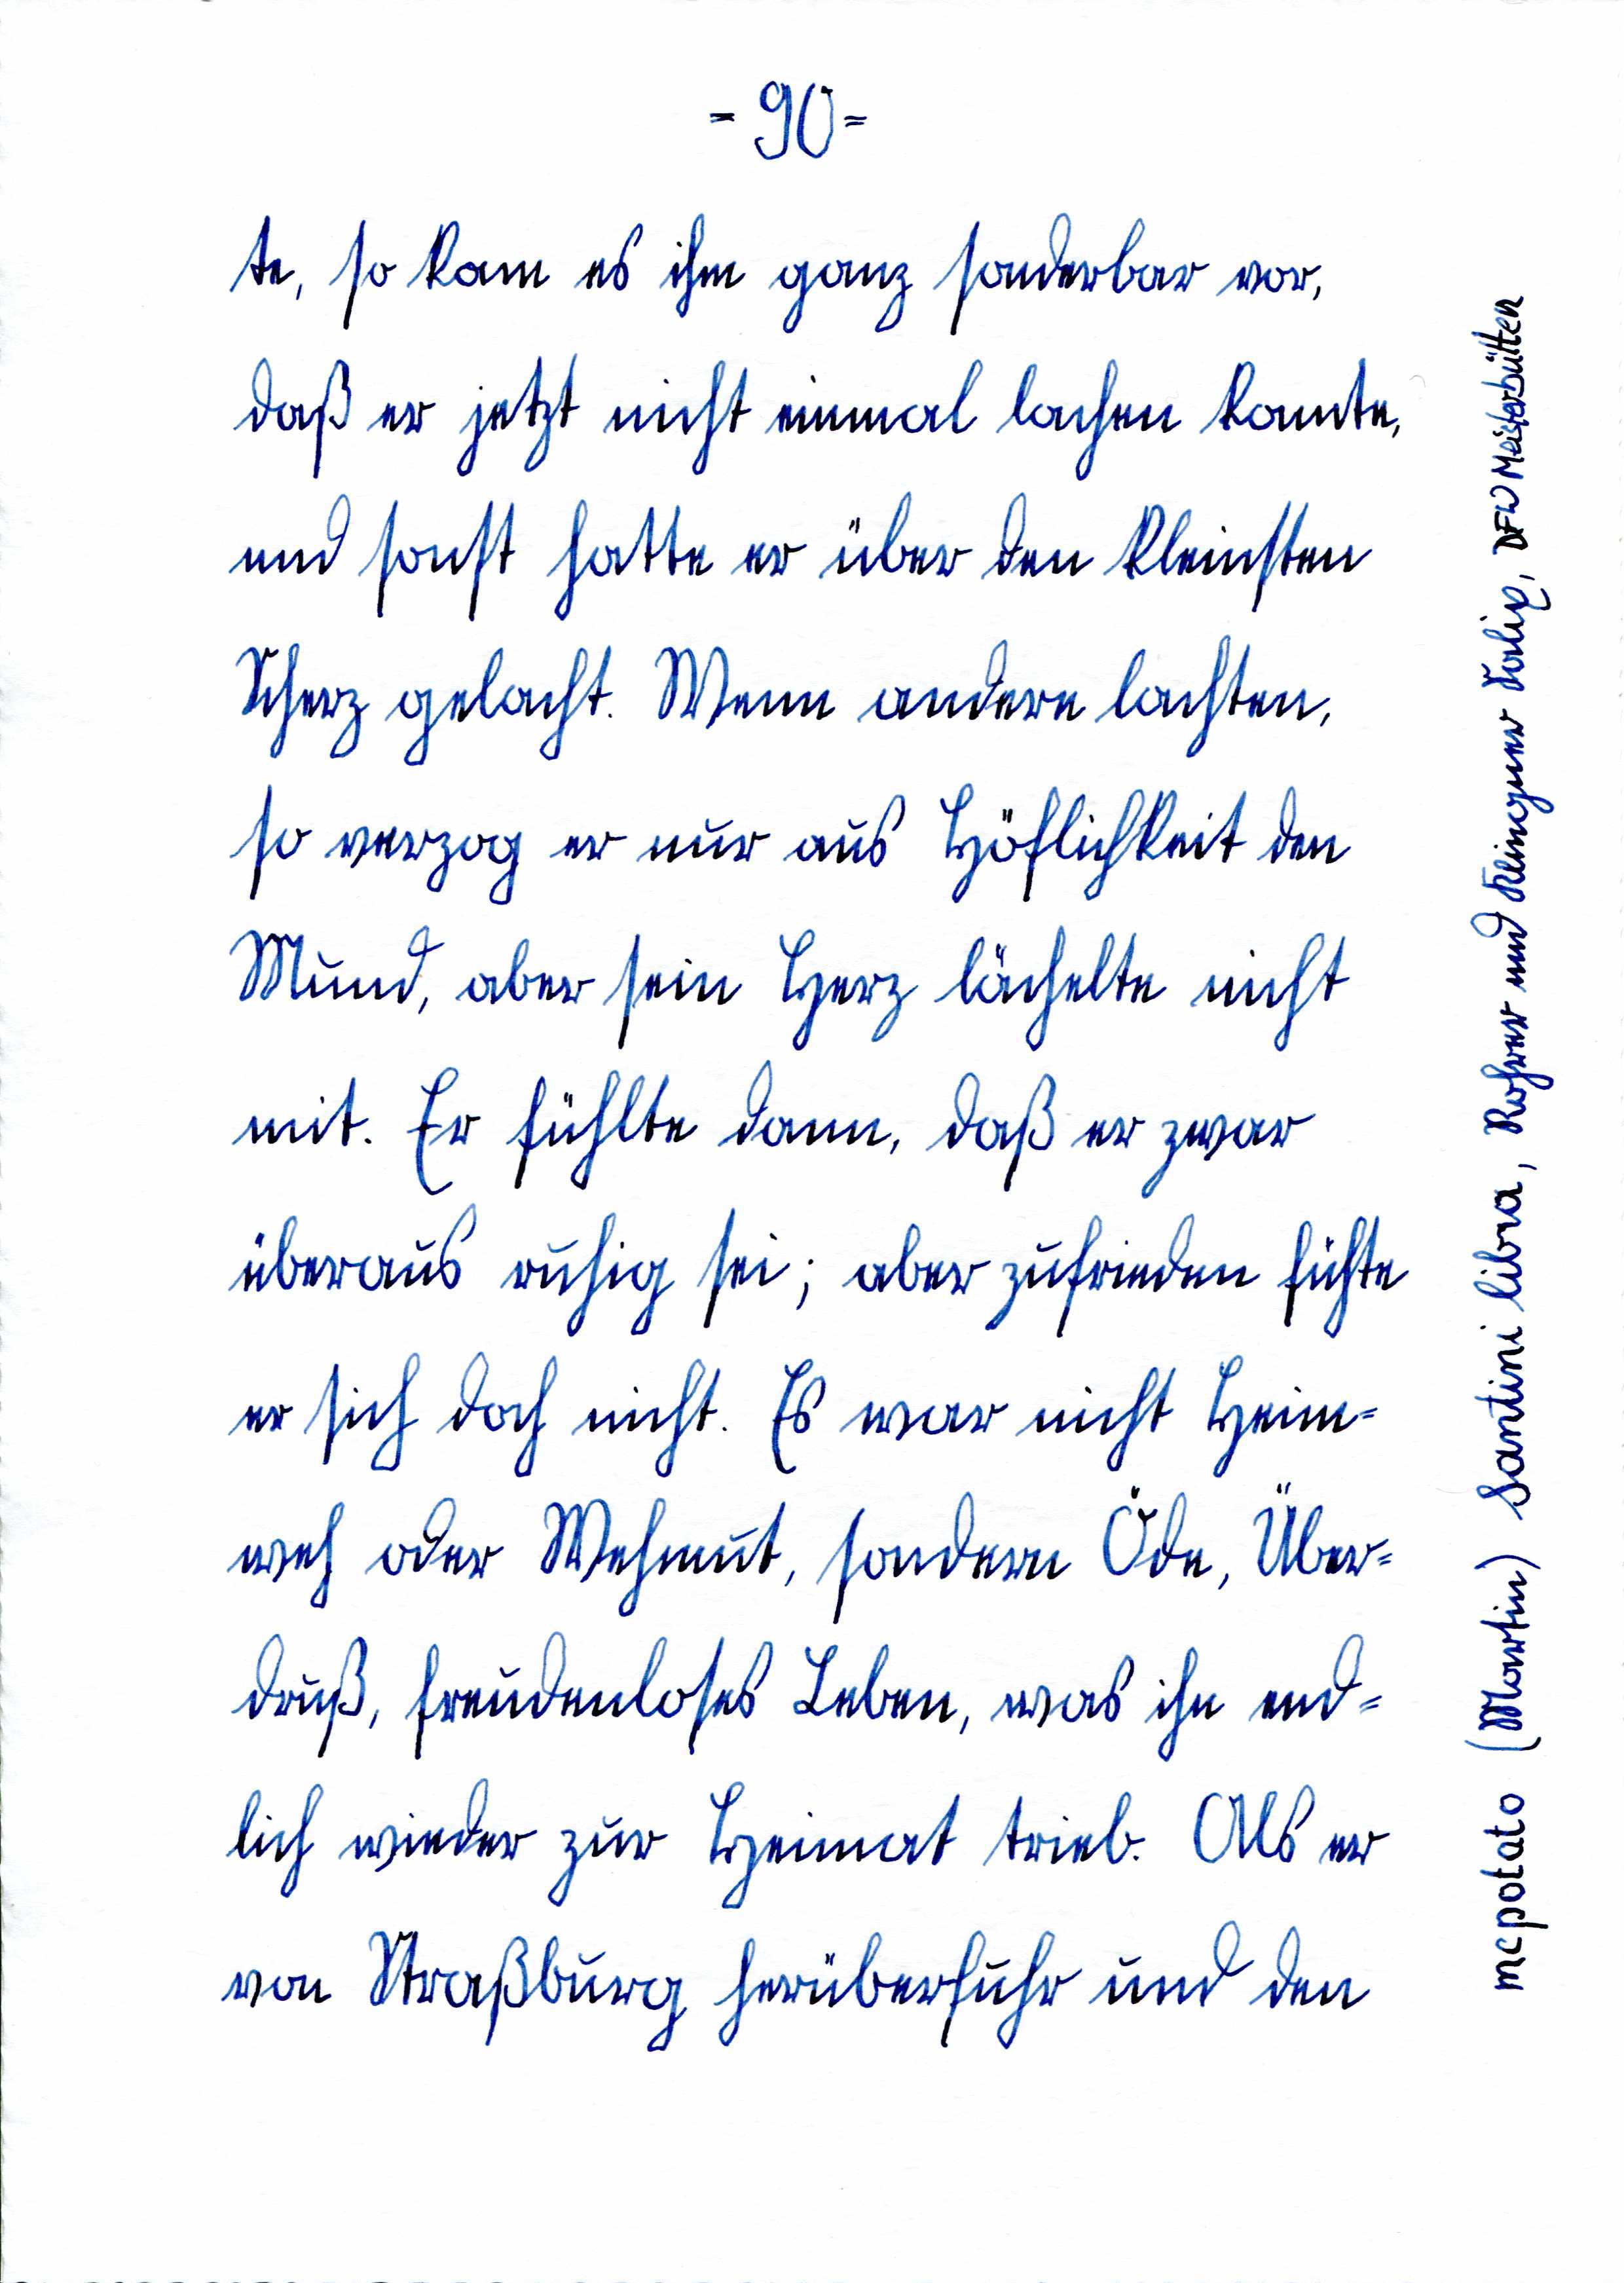 - 90 =
te, so kam es ihm ganz sonderbar vor,
daß er jetzt nicht einmal lachen konnte,
und sonst hatte er über den kleinsten
Scherz gelacht. Wenn andere lachten,
so verzog er nur aus Höflichkeit den
Mund, aber sein Herz lächelte nicht
mit. Er fühlte dann, daß er zwar
überaus ruhig sei; aber zufrieden fühte
er sich doch nicht. Es war nicht Heim=
weh oder Wehmut, sondern Öde, Über=
druß, freudenloses Leben, was ihn end=
lich wieder zur Heimat trieb. Als er
von Straßburg herüberfuhr und den
mcpotato (Martin) Santini libra, Rohrer und Klingner Salix, DFW Meisterbütten